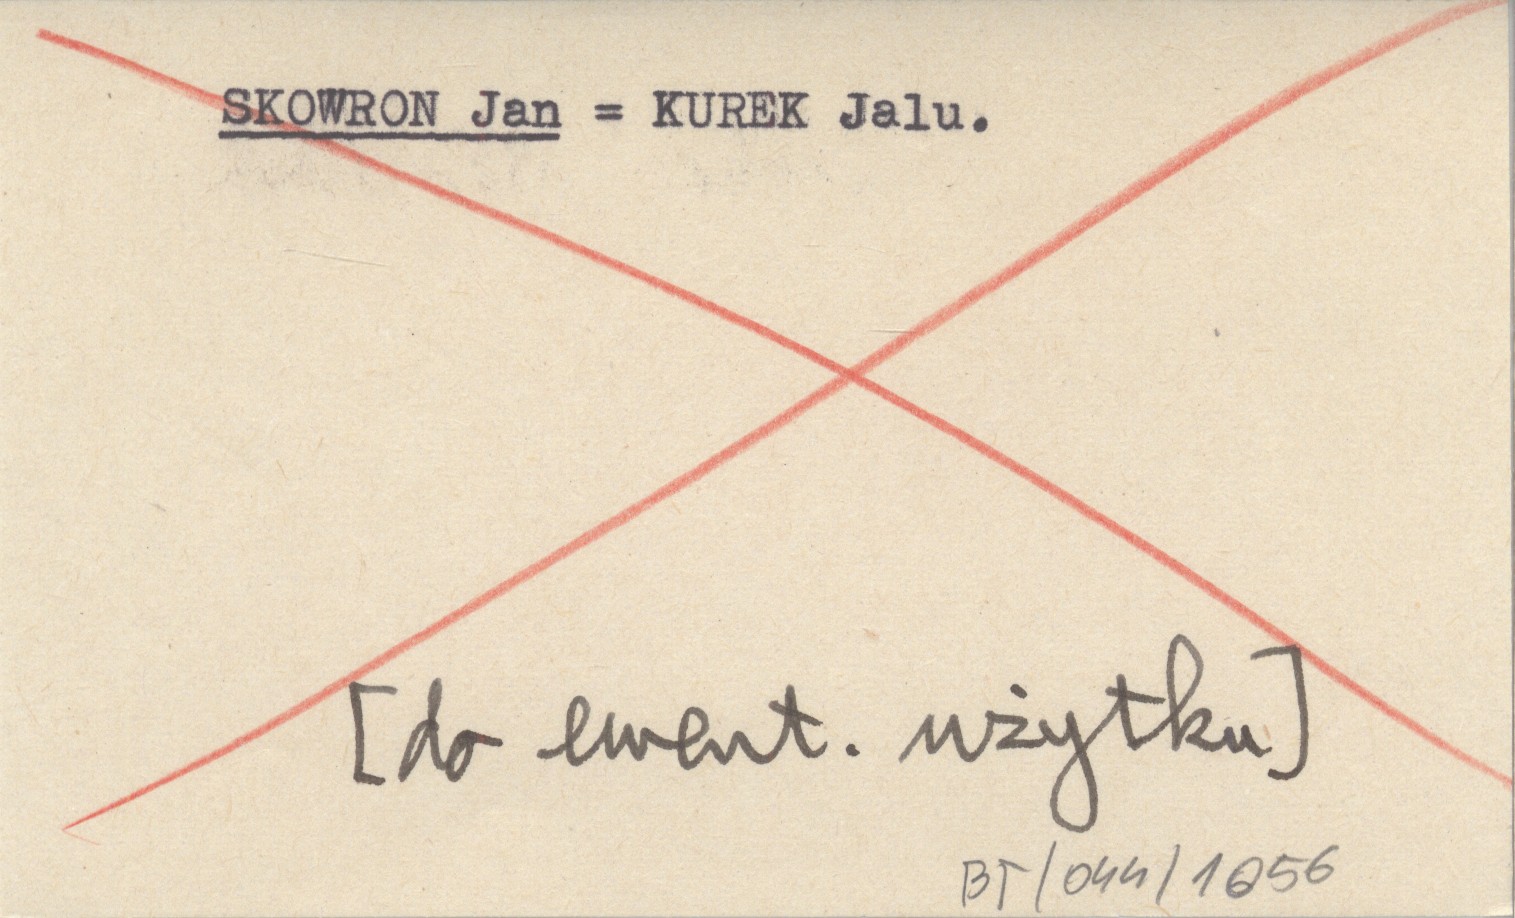 SKOWRON Jan = KUREK Jalu.
[do ewent. użytku]
BT/044/1056